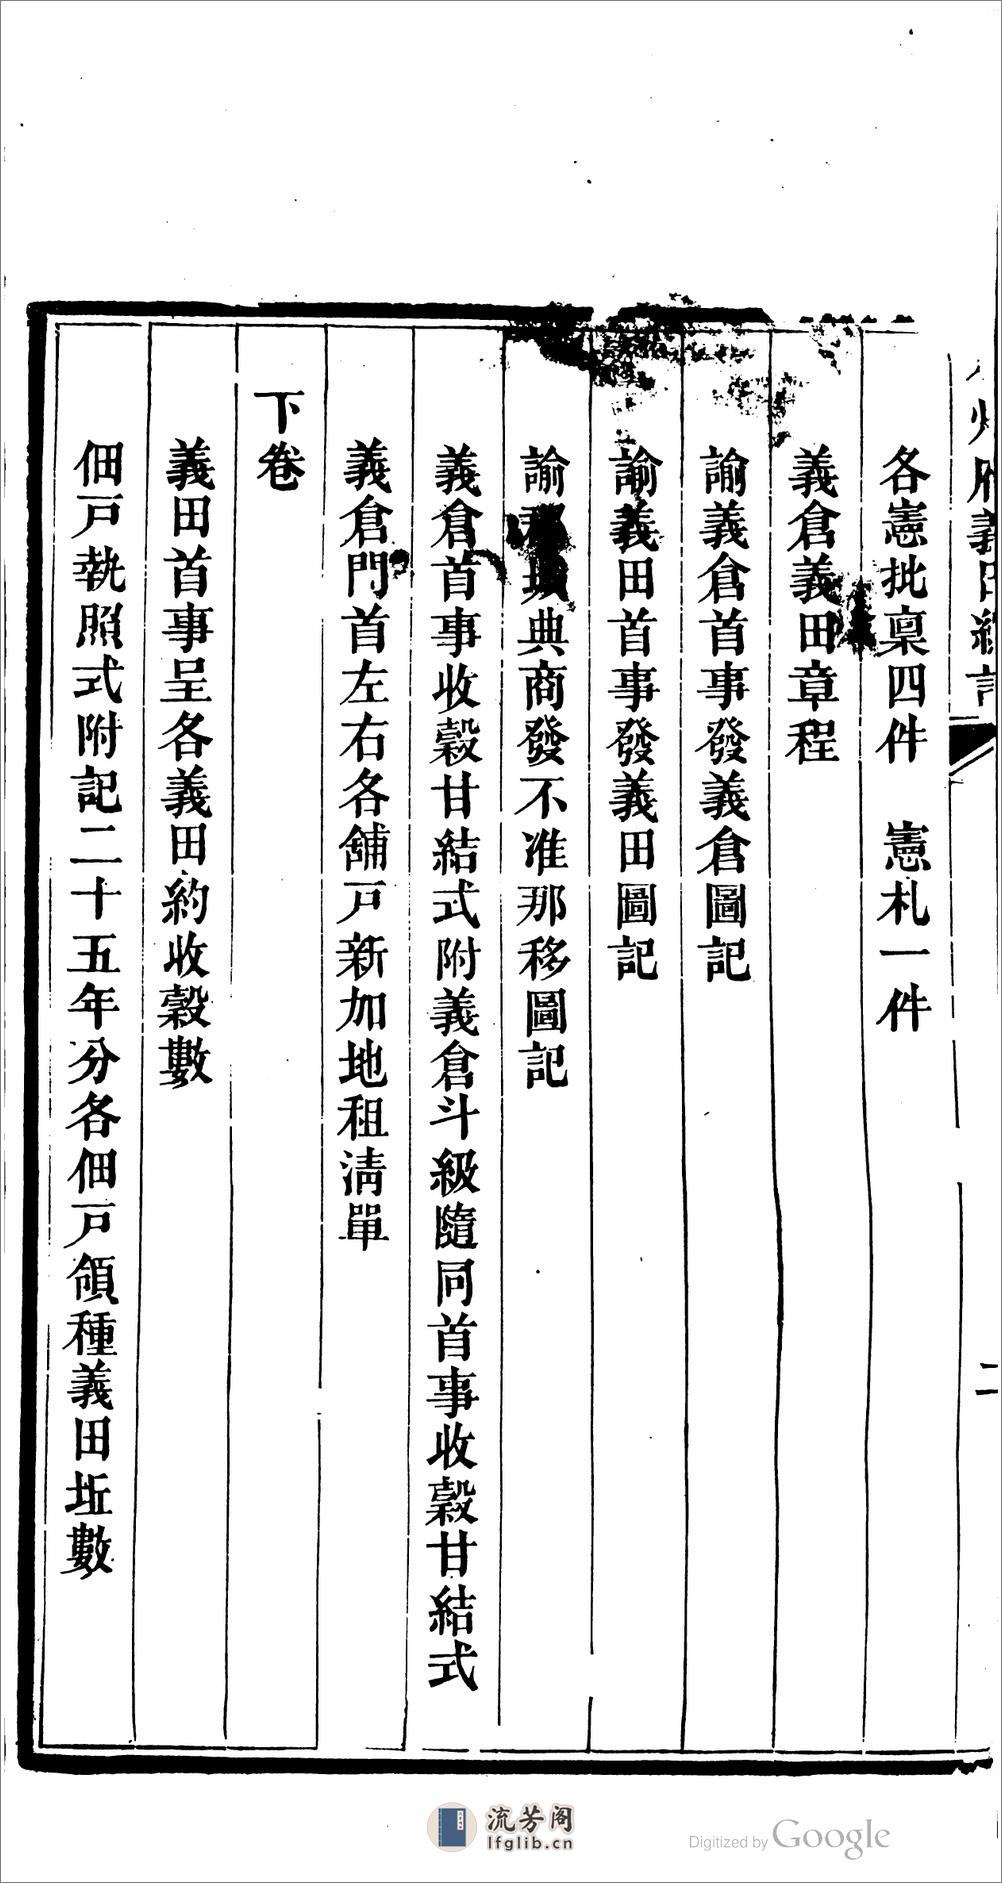 州府義田總記
二
各憲批稟四件　憲札一件
義倉義田章程
諭義倉首事發義倉圖記
諭義田首事發義田圖記
諭城典商發不准那移圖記
義倉首事收穀甘結式附義倉斗級隨同首事收穀甘結式
義倉門首左右各舖戸新加地租清單
下卷
義田首事呈各義田約收穀數
佃戸執照式附記二十五年分各佃戸領種義田坵數
流芳阁
lfglib.cn
Digitized by Google